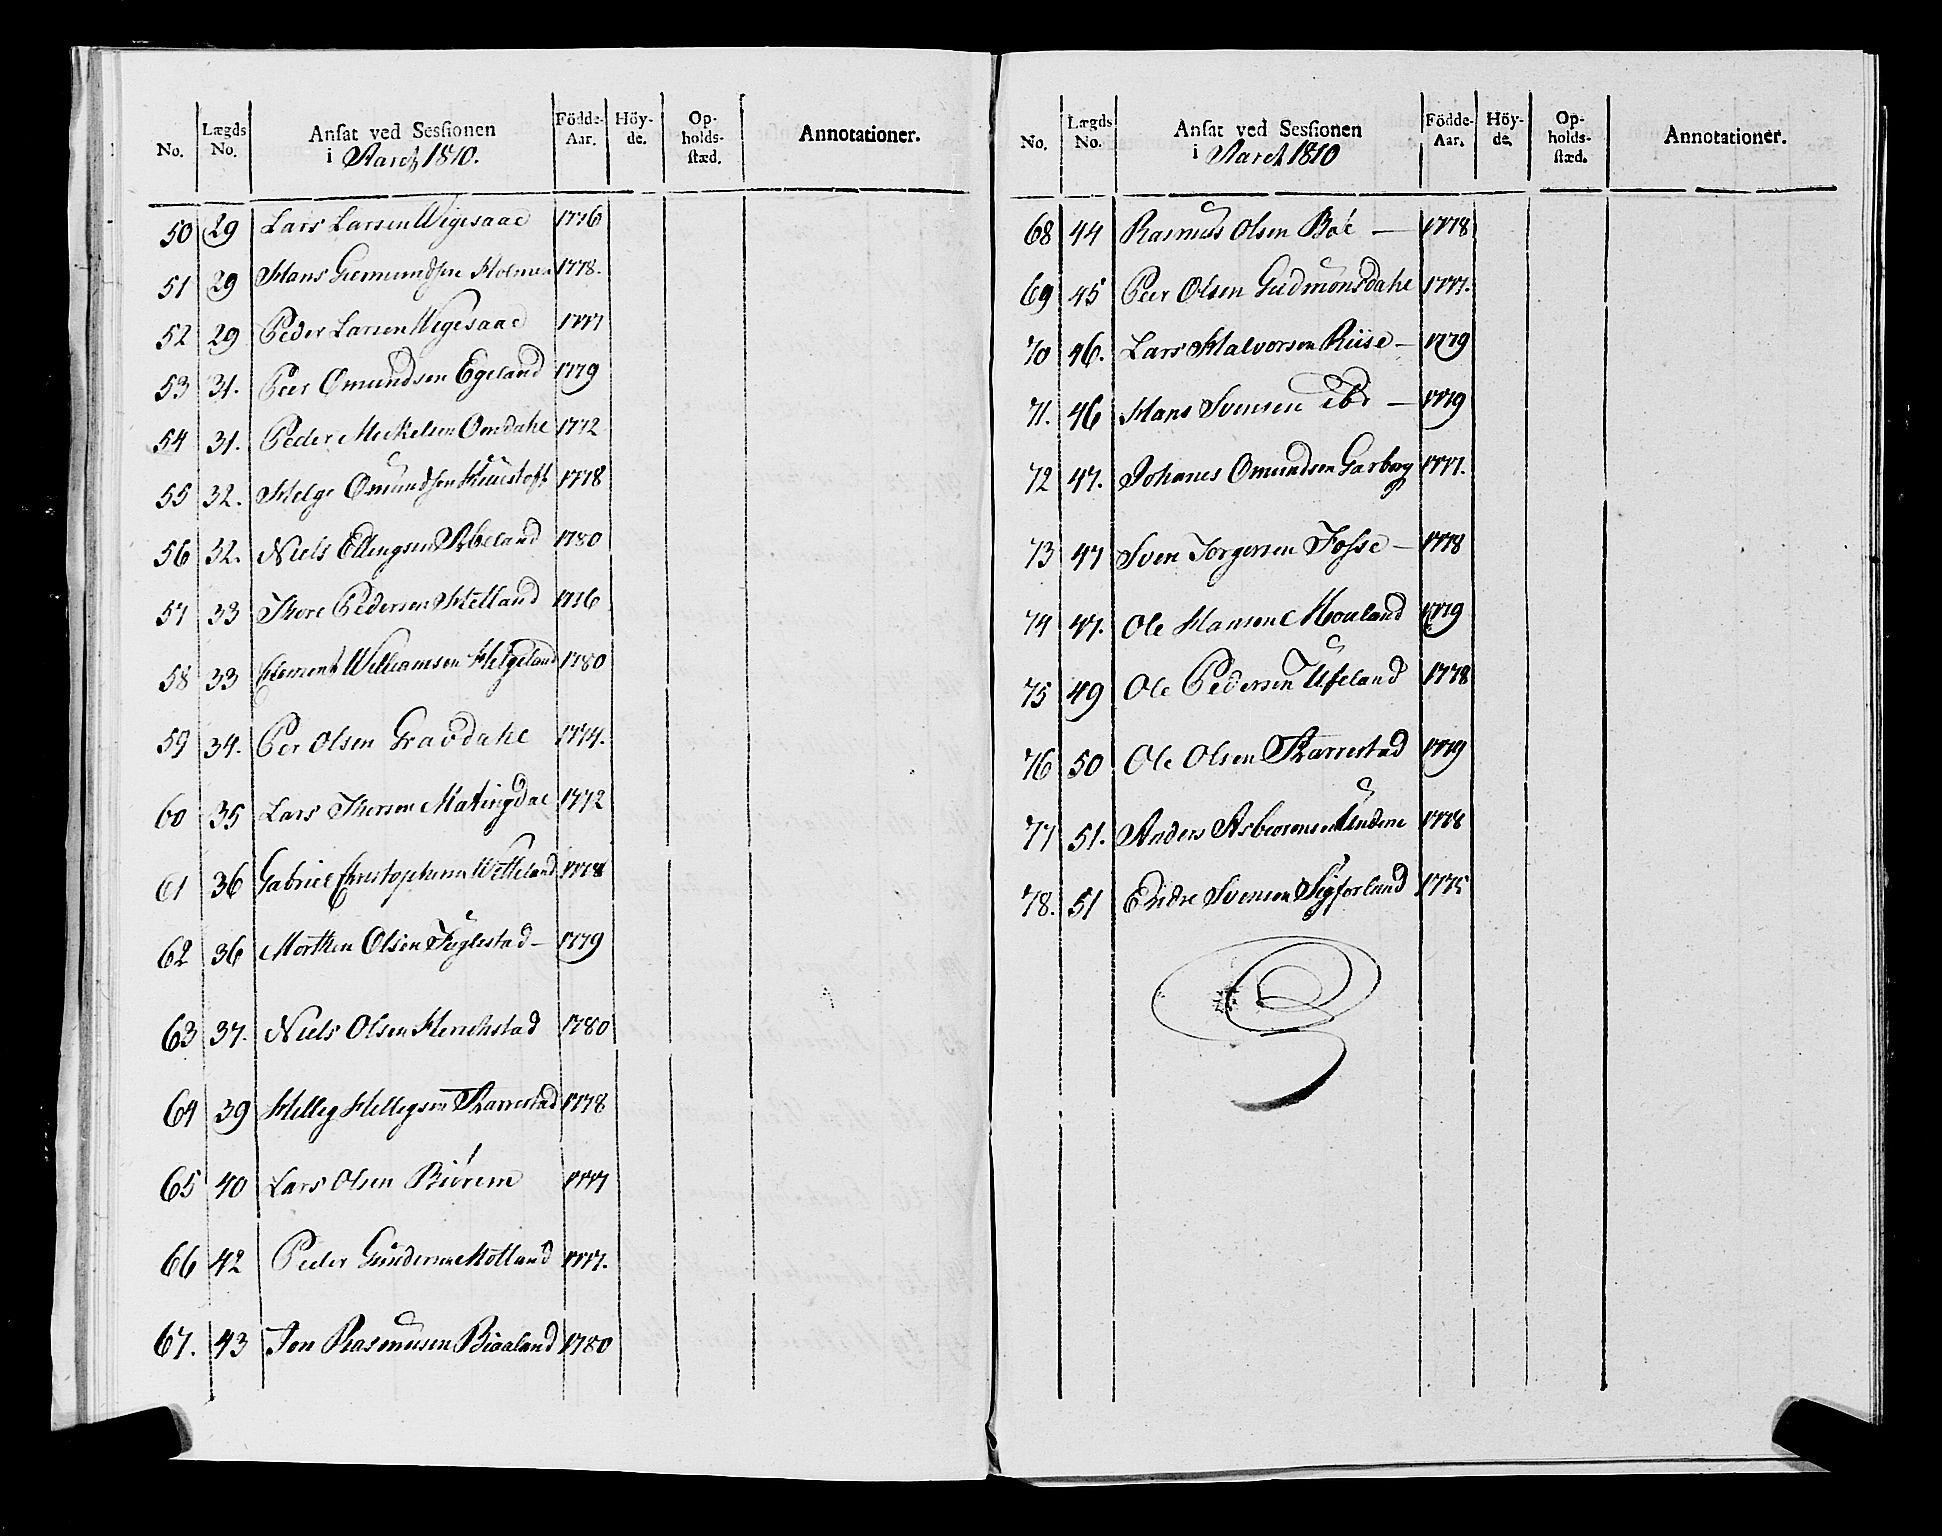 No. Lægds No. Ansat ved Sessionen i Aaret 1810. Födde-Aar. Höy-de. Op-holds-stæd. Annotationer.
50 29 Lars Larsen Wigesaae 1776
51 29 Hans Giermundsen Holmen 1778.
52 29 Peder Larsen Wigesaae 1777
53 31. Peer Omundsen Egeland 1779
54 31. Peder Meckelsen Omdahl 1772
55 32. Helge Omundsen 1778
56 32. Niels Ellingsen Abeland 1780
57 33 Thore Pedersen Helland 1776
58 33 Clement Williamsen Helgeland 1780
59 34. Per Olsen Gravdahl 1774.
60 35 Lars Thorsen Matingdal 1772
61 36 Gabriel Christophersen Wetteland 1778
62 36 Morthen Olsen Fuglestad – 1779
63 37. Niels Olsen Henichstad 1780
64 39 Helleg Hellegsen Skarrestad 1778
65 40 Lars Olsen Biorem 1777
66 42 Peder Gundersen Motland 1777.
67. 43 Jon Rasmusen Bioaland 1780
No. Lægds No. Ansat ved Sessionen i Aaret 1810 Födde-Aar. Höy-de. Op-holds-stæd. Annotationer.
68 44 Rasmus Olsen Boe — 1778
69 45 Peer Olsen Gudmonsdahl 1777.
70 46. Lars Halvorsen Riise – 1779
71. 46 Hans Svensen ibd — 1779
72 47. Johanes Omundsen Garborg 1777.
73 47 Sven Torgersen Fosse – 1778
74 47. Ole Hansen Mouland 1779
75 49 Ole Pedersen Ufeland 1778
76 50 Ole Olsen Skarrestad 1779
77 51. Anders Asbiornsen Undem 1778
78. 51 Endre Svensen Sigforland 1775